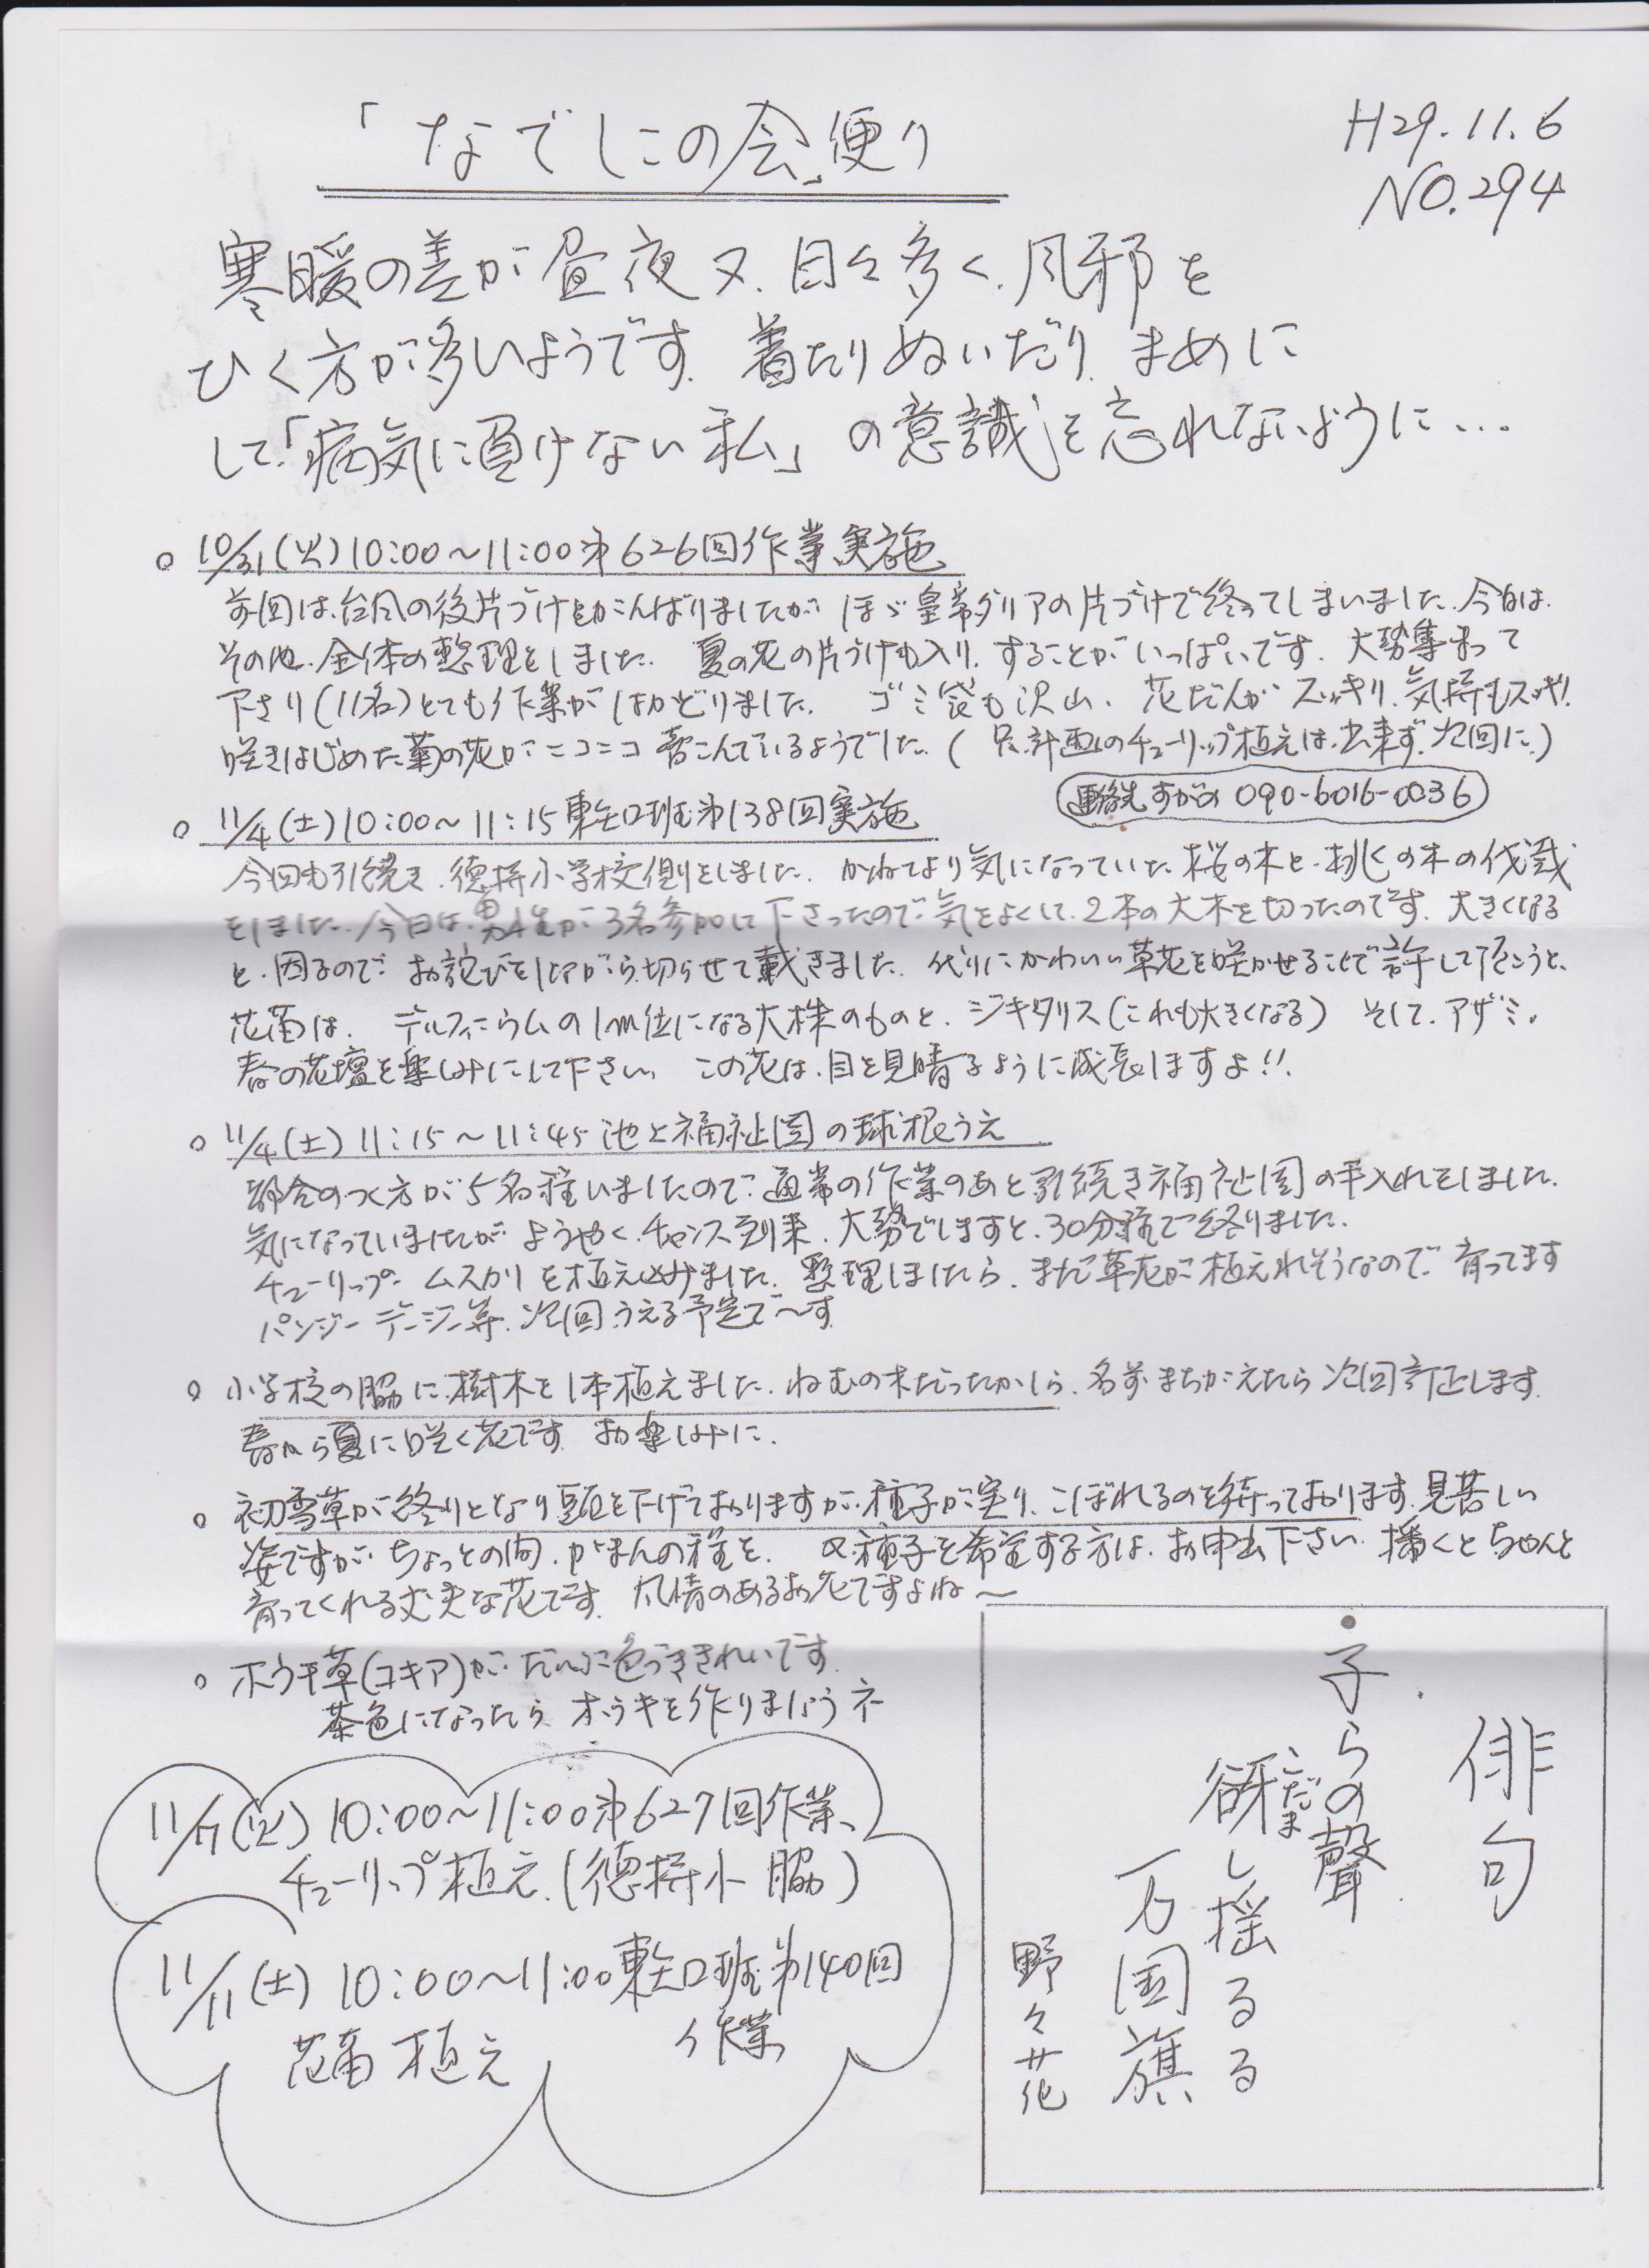 「なでしこの会」便り
H29.11.6
NO.294
寒暖の差が昼夜又、日々多く、風邪を
ひく方が多いようです。着たりぬいだり、まめに
して、「病気に負けない私」の意識を忘れないように…
○ 10/31(火)10:00～11:00 第626回作業実施
前回は、台風の後片づけをがんばりましたが、ほゞ皇帝ダリアの片づけで終ってしまいました。今日は、
その他、全体の整理をしました。夏の花の片づけも入り、することがいっぱいです。大勢集まって
下さり(11名)とても作業がはかどりました。ゴミ袋も沢山、花だんがスッキリ、気持もスッキリ!
咲きはじめた菊の花がニコニコ喜こんでいるようでした。(只、計画のチューリップ植えは、出来ず、次回に)
連絡先 すがの 090-6016-0036
○ 11/4(土)10:00～11:15 東矢口班第138回実施
今回も引続き、徳持小学校側をしました。かねてより気になっていた桜の木と、桃の木の伐採
をしました。今日は、男性が3名参加して下さったので、気をよくして、2本の大木を切ったのです。大きくなる
と、困るので、お詫びをしながら切らせて戴きました。代りにかわいい草花を咲かせることで許して頂こうと、
花苗は、デルフィニウムの1m位になる大株のものと、ジキタリス(これも大きくなる) そして、アザミ。
春の花壇を楽しみにして下さい。この花は、目を見晴るように成長しますよ!!
○ 11/4(土)11:15～11:45 池上福祉園の球根うえ
都合のつく方が5名程いましたので、通常の作業のあと引続き福祉園の手入れをしました。
気になっていましたが、ようやく、チャンス到来、大勢でしますと、30分程で終りました。
チューリップ、ムスカリを植え込みました。整理しましたら、まだ草花が植えれそうなので、育ってます
パンジー、デージー等、次回、うえる予定で～す
○ 小学校の脇に、樹木を1本植えました。ねむの木だったかしら、名前まちがえたら次回訂正します。
春から夏に咲く花です。お楽しみに。
○ 初雪草が終りとなり頭を下げておりますが、種子が実り、こぼれるのを待っております。見苦しい
姿ですが、ちょっとの間、がまんの程を。又、種子を希望する方は、お申出下さい。播くとちゃんと
育ってくれる丈夫な花です。風情のあるお花ですよね～
○ ホウキ草(コキア)が、だいぶ色づききれいです。
茶色になったら、ホウキを作りましょうネ
11/7(火)10:00～11:00 第627回作業、
チューリップ植え、(徳持小 脇)
11/11(土) 10:00～11:00 東矢口班第140回
作業
花苗植え
俳句
・子らの聲
こだま
谺し揺るる
万国旗
野々花